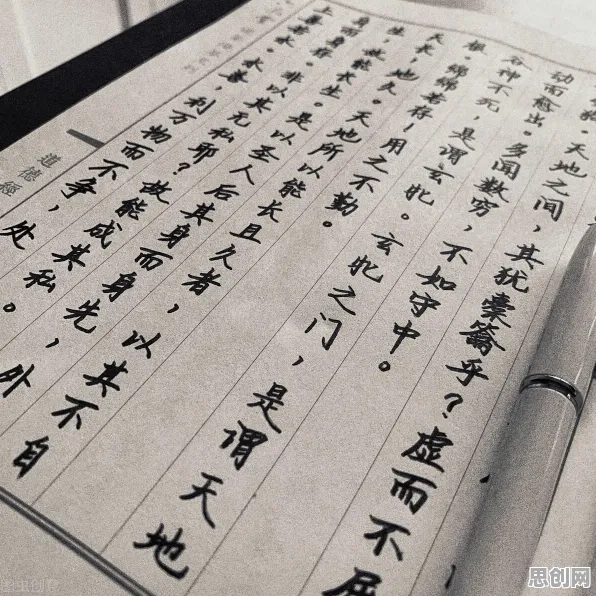 狗。天地之间，其犹橐籥乎？虚而不屈
动而愈出。多闻数穷，不如守中。
谷神不死，是谓玄牝。玄牝之门，是谓天地
根。绵绵若存，用之不勤。
天长，地久。天地所以能长且久者，以其不自
生，故能长生。是以圣人后其身而身先，外
身而身存。非以其无私邪？故能成其私。
上善若水。水善，利万物而不争，处
道德經
思创网